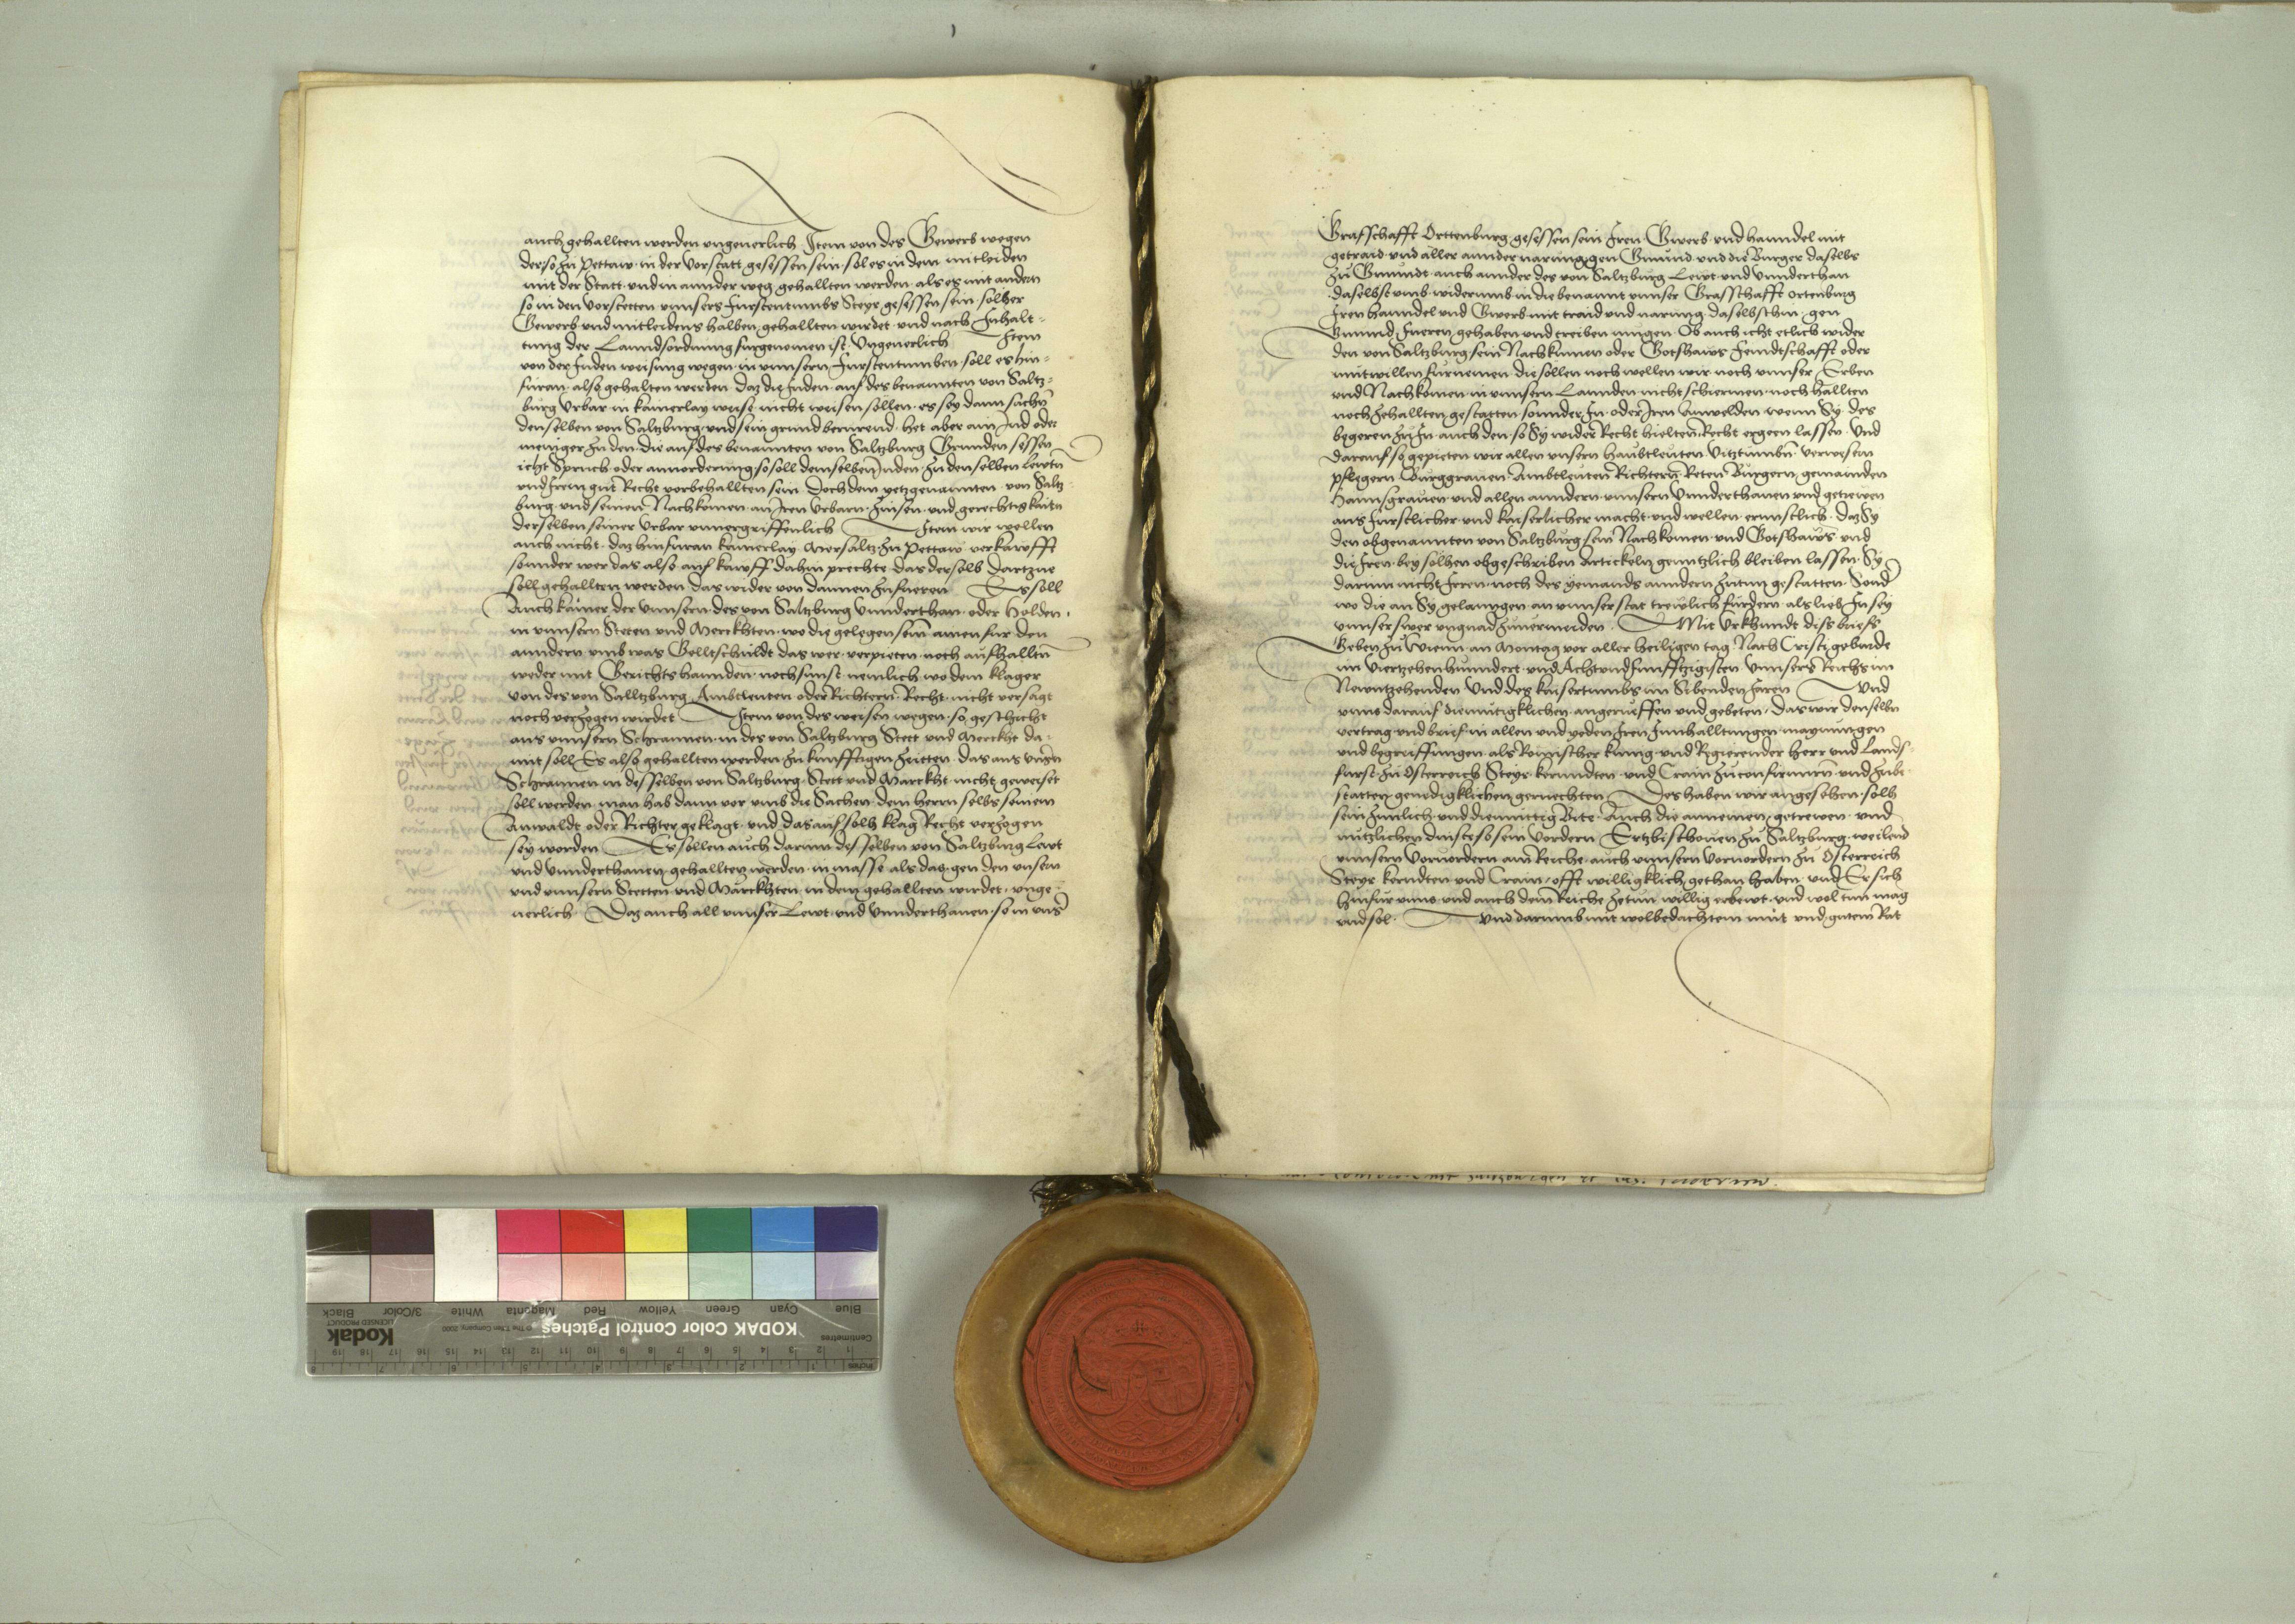 auch gehallten werden ungeuerlich Item von des Gewerbs wegen
der so zu Pettaw in der Vorstatt gesessen sein sol es in dem mitleiden
mit der Statt vnd in annder weg gehallten werden als es mit andern
so in den Vorstetten vnnsers Furstentumbs Steyr gesessen sein solher
Gewerb vnd mitleidens halben gehallten wirdet vnd nach Innhalt-
tung der Lanndsordnung furgenomen ist Ungeuerlich Item
von der Juden weisung wegen in vnnsern Furstentumben soll es hin-
furan also gehalten werden daz die Juden auf des benannten von Saltz-
burg Urbar in kainerlay weise nicht weisen sollen es sey dann sachn
denselben von Saltzburg vnd sein grund berurend het aber ain Jud oder
meniger zu den die auf des benannten von Saltzburg Grunden sessen
icht Spruch oder anuorderung so soll demselben Juden zu denselben Lewtn
vnd Irem gut Recht vorbehallten sein doch dem yetzgenannten von Saltz
burg vnd seinen Nachkomen an Iren Urbarn Zinsen vnd gerechtigkaitn
derselben seiner Urbar vnuergriffenlich Item wir wellen
auch nicht daz hinfuran kainerlay Mersaltz zu Pettaw verkawfft
sonnder wer das also auf kawff dahin prechte das derselb dartzue
soll gehallten werden das wider von dannen zufueren Es soll
Auch kainer der vnnsern des von Saltzburg vnnderthan oder Holden
in vnnsern Steten vnd Merckhten wo die gelegen sein ainen fur den
anndern vmb was Gelltschuldt das wer verpieten noch aufhalltn
weder mit Gerichts hannden noch sunst nemlich wo dem klager
von des von Salltzburg Ambtleuten oder Richtern Recht nicht versagt
noch verzogen wirdet Item von des weisen wegen so geschicht
aus vnnsern Schrannen in des von Saltzburg Stett vnd Merckht da-
mit soll Es also gehallten werden zu kunfftigen zeitten das aus vnsrn
Schrannen in desselben von Saltzburg Stett vnd Marckht nicht geweiset
soll werden man hab dann vor vmb die Sachen dem herrn selbs seinem
Anwaldt oder Richter geklagt vnd das auf solh klag Recht verzogen
sey worden Es sollen auch darinn desselben von Saltzburg Lewt
vnd vnnderthanen gehallten werden in masse als das gen den vnsern
vnd vnnsern Stetten vnd Marckhten in dem gehallten wirdet vnge-
uerlich Daz auch all vnnser Lewt vnd vnnderthanen so in vnsr
Grafschafft Orttenburg gesessen sein Iren Gwerb vnd hanndel mit
getraid vnd aller annder narung gen Gmund vnd die Burger daselbs
zu Gmundt auch annder des von Saltzburg Lewt vnd vnnderthan
daselbst vmb widerumb in die benannt vnnser Graffschafft Ortenburg
Iren hanndel vnd Gwerb mit traid vnd narung daselbsthin gen
Gmund fueren gehaben vnd treiben mugen Ob auch icht etlich wider
den von Saltzburg sein Nachkumen oder Gotshaws Feindtschafft oder
mutwillen furnemen die sollen noch wellen wir noch vnnser Erben
vnd Nachkomen in vnnsern Lannden nicht schiermen noch hallten
noch zehallten gestatten sonnder In oder Iren Anwelden wenn Sy des
begeren zu In auch den so Sy wider Recht hielten Recht ergeen lassen Und
darauf so gepieten wir allen vnsern Haubtleuten Vitztumbn Verwesern
Pflegern Burggrauen Ambtleuten Richtern Reten Burgern gemainden
Hannsgrauen vnd allen anndern vnnsern vnnderthanen vnd getrewen
aus furstlicher vnd kaiserlicher macht vnd wellen ernnstlich daz Sy
den obgenannten von Saltzburg sein Nachkomen vnd Gotshaws vnd
die Iren bey solhen obgeschriben Artickeln genntzlich bleiben lassen Sy
darinn nicht Irren noch des yemands anndern zutun gestatten Sonder
wo die an Sy gelanngen an vnnser stat treulich furdern als lieb In sey
vnnser swer vngnad zuuermeiden Mit Urkhundt diss briefs
Geben zu Wienn an Montag vor aller Heiligen tag Nach Cristi geburde
im Viertzehenhunndert vnd Achtundfunfftzigisten vnnsers Reichs im
Newntzehenden Und des kaisertumbs im Sibenden Jaren Und
vnns darauf diemutigklichen angeruffen vnd gebeten das wir denselbn
vertrag vnd brief in allen vnd yeden Iren Innhalltungen maynungen
vnd begreiffungen als Romischer kunig vnd Regierender Herr vnd Lands-
furst zu Osterreich Steyr kernndten vnd Crain zu confirmirn vnd zube-
statten genedigklichen geruechten Des haben wir angesehen solh
sein zimlich vnd diemuttig Bite Auch die annemen getrewen vnd
nutzlichen dinste so sein Vordern Ertzbischouen zu Saltzburg weilend
vnnsern Voruordern am Reiche auch vnnsern Voruordern zu Osterreich
Steyr kerndten vnd Crain offt willigklich gethan haben vnd Er sich
hinfur vnns vnd auch dem Reiche zetun willig erbewt vnd wol tun mag
vnd sol Und darumb mit wolbedachtem mut vnd gutem Rat
KODAK Color Control Patches
Kodak
LICENSED PRODUCT
© The Tiffen Company, 2000
Blue Cyan Green Yellow Red Magenta White 3/Color Black
Centimetres
Inches